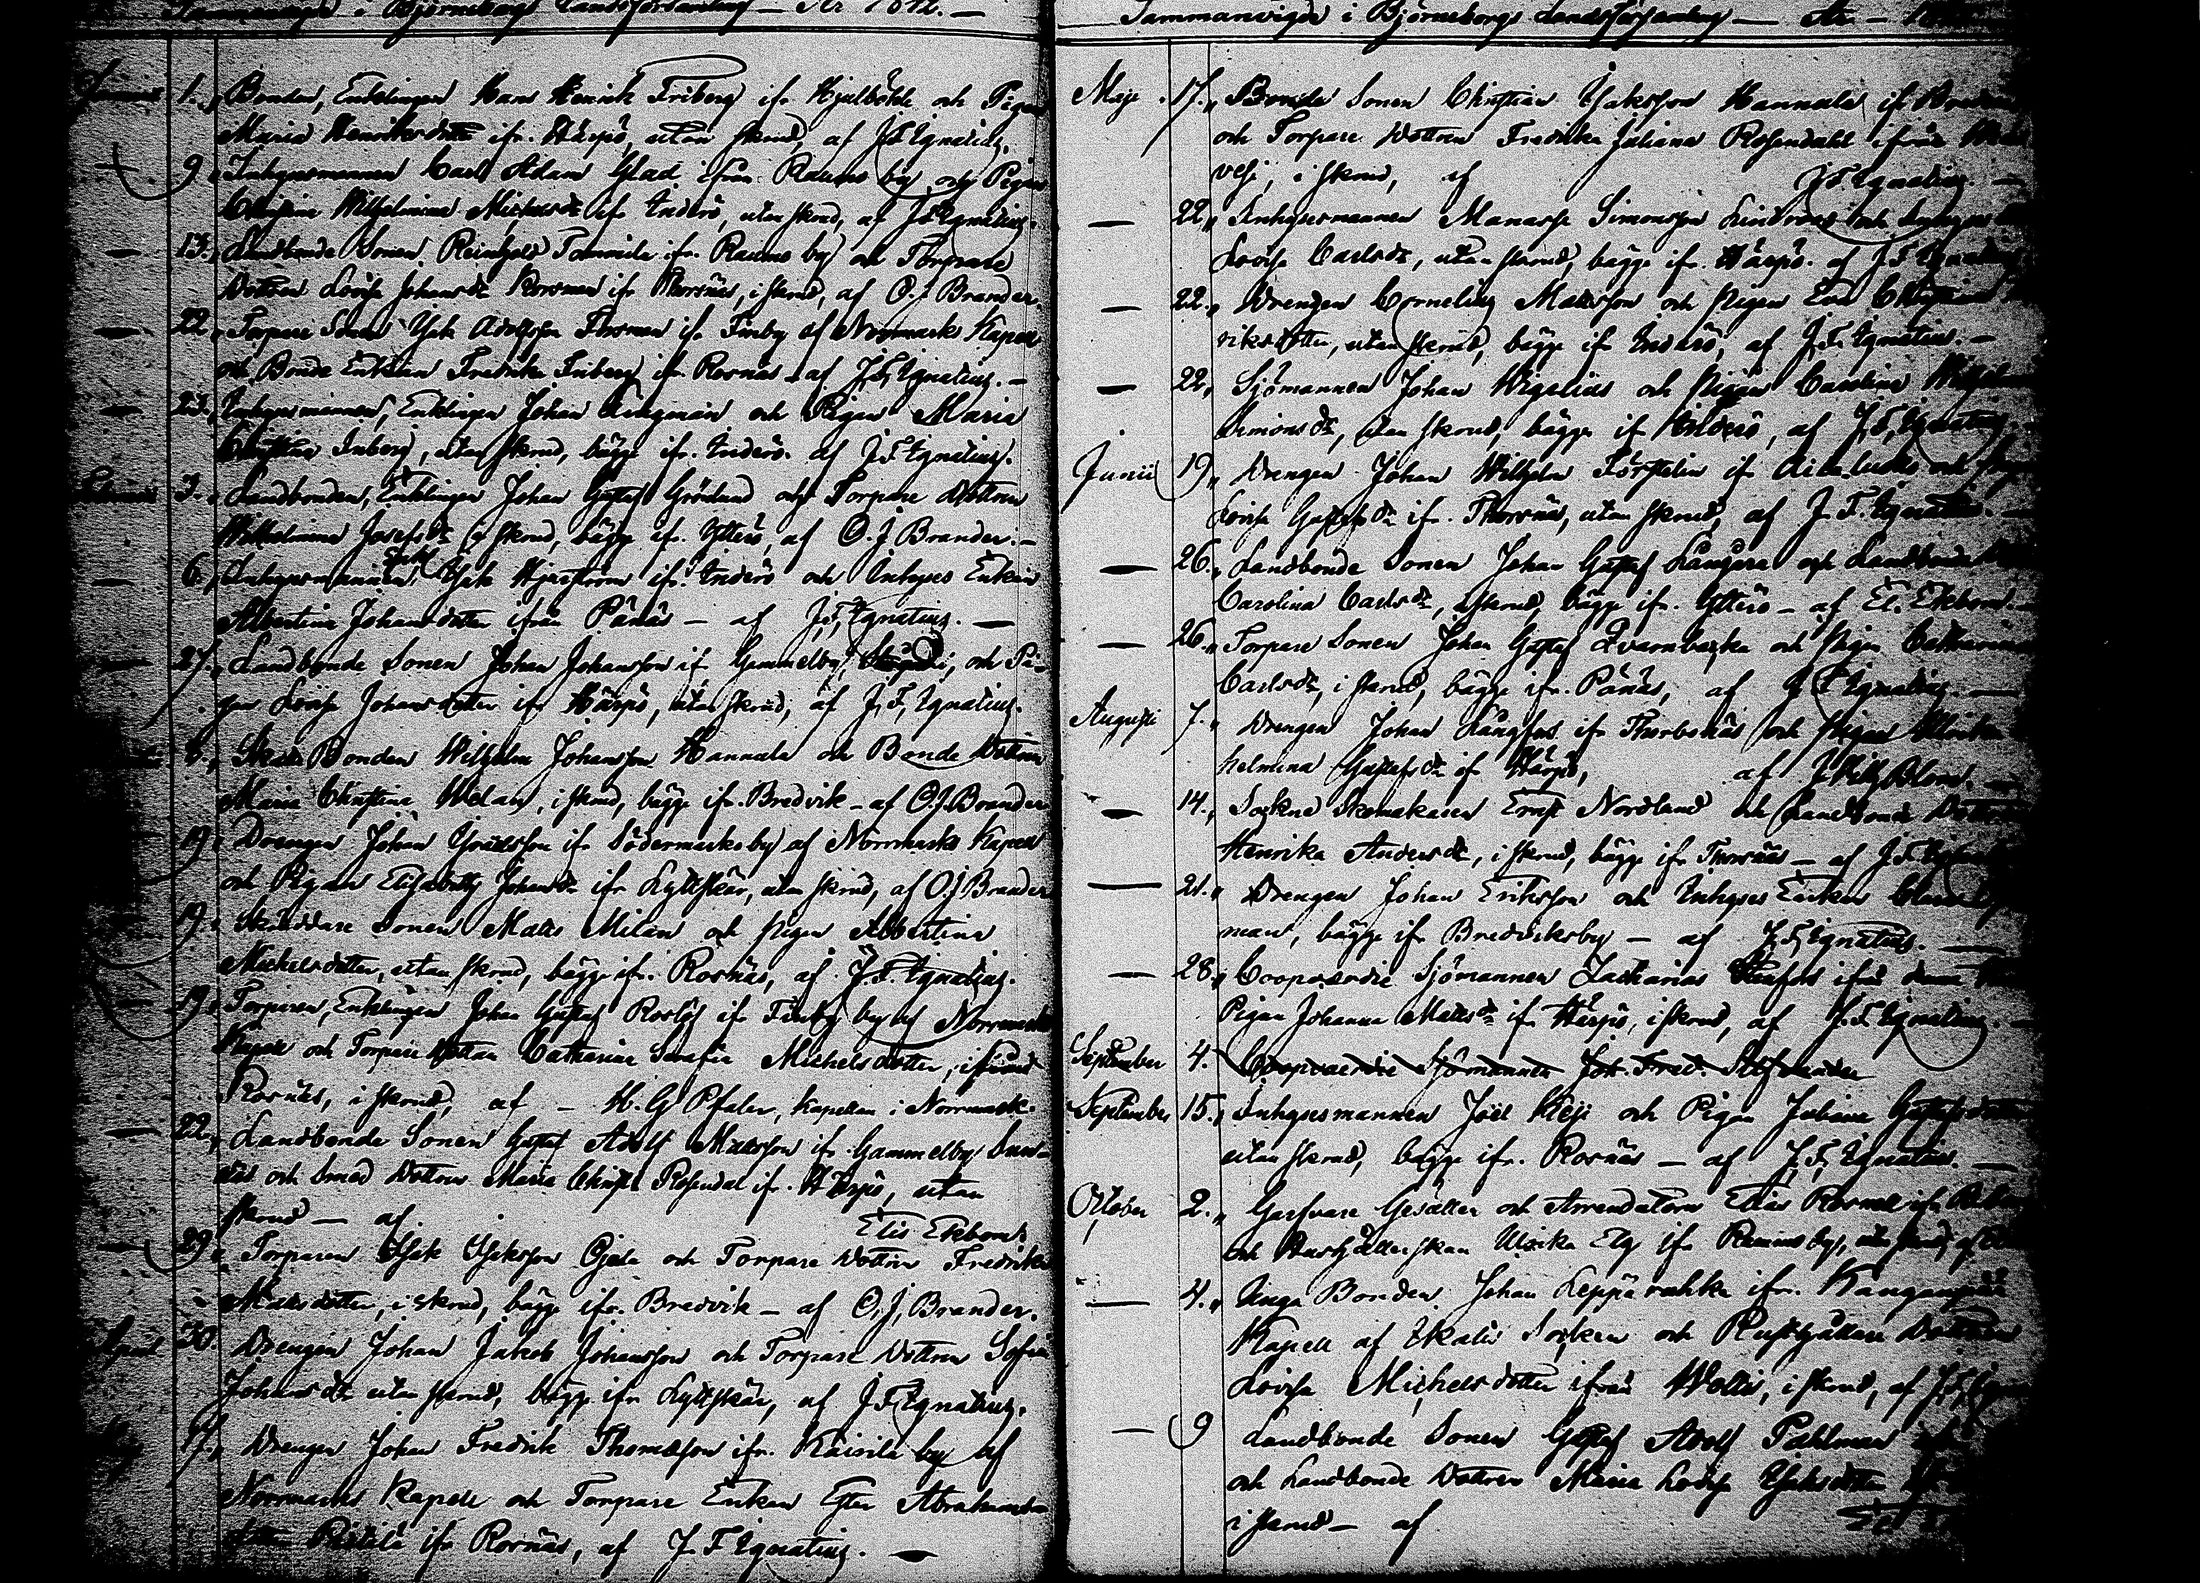 Sammanvigde i Björneborgs Landsförsamling — År 1842. —
1. Bonden, Enklingen Hans Henrik Friberg ifr. Hjulböhle och Pigan
Maria Henriksdotter ifr. Härpö, utan skrud, af J. F. Ignatius.
9. Inhysesmannen Carl Adam Glad ifrån Raumo by och Pigan
Christina Wilhelmina Michelsdr ifr. Inderö, utan skrud, af J. F. Ignatius.
13. Landbonde Sonen Reinhold Tommila ifr. Raumo by och Torpare
Dottren Lovisa Johansdr Rosman ifr. Thorsnäs, i skrud, af O. J. Brander.
22. Torpare Sonen Isak Adolfsson Thomen ifr. Finby af Norrmarks Kapell
och Bonde Enkan Fredrika Friberg ifr. Rosnäs, af J. F. Ignatius. —
23. Inhysesmannen, Enklingen Johan Lingman och Pigan Maria
Christina Inberg, utan skrud, bägge ifr. Inderö, af J. F. Ignatius.
3. Landbonden, Enklingen Johan Gustaf Grönlund och Torpare Dottren
Wilhelmina Josefsdr i skrud, bägge ifr. Ytterö, af O. J. Brander. —
6. Inhysesmannen Isak Hjertström ifr. Inderö och Inhyses Enkan
Albertina Johansdotter ifrån Pånäs — af J. F. Ignatius. —
27. Landbonde Sonen Johan Johansson ifr. Gammelby, och Pi-
gan Lovisa Johansdotter ifr. Härpö, utan skrud, af J. F. Ignatius.
Bonden Wilhelm Johansson Hannula och Bonde Dottren
Maria Christina Welan, i skrud, bägge ifr. Bredvik — af O. J. Brander.
19. Drengen Johan Israelsson ifr. Södermarks by af Norrmarks Kapell
och Pigan Elisabeth Johansdr ifr. Kyttskär, utan skrud, af O. J. Brander
19. Skräddare Sonen Matts Milan och Pigan Albertina
Michelsdotter, utan skrud, bägge ifr. Rosnäs, af J. F. Ignatius.
19. Torparen, Enklingen Johan Gustaf Roslöf ifr. Finby by af Norrmarks
Kapell och Torpare Dottren Catharina Serafia Michelsdotter, ifrån
Rosnäs, i skrud, af — H. G. Pfaler, Kapellan i Norrmark.
22. Landbonde Sonen Gustaf Adolf Mattsson ifr. Gammelby
och Smed Dottren Maria Christ. Rosendal ifr. Härpö, utan
skrud — af Elis Ekbom.
29. Torparen Isak Isaksson Ojala och Torpare Dottren Fredrika
Mattsdotter, i skrud, bägge ifr. Bredvik — af O. J. Brander.
April 30. Drengen Johan Jakob Johansson och Torpare Dottren Sofia
Johansdr utan skrud, bägge ifr. Kyttskär, af J. F. Ignatius.
Drengen Johan Fredrik Thomasson ifr. Kairila by af
Norrmarks Kapell och Torpare Enkan Ester Abrahams
dotter ifr. Rosnäs, af J. F. Ignatius. —
Sammanvigde i Björneborgs Landsförsamling — År —
Maji 17. Bonde Sonen Christian Isaksson Hannula ifr.
och Torpare Dottren Fredrika Juliana Rosendahl ifrån
vesi, i skrud, af J. F. Ignatius. —
— 22. Inhysesmannen Manasse Simonsson Lindroos och
Lovisa Carlsdr, utan skrud, bägge ifr. Härpö. af J. F. Ignatius
— 22. Drengen Cornelius Mattsson och Pigan Eva Christina
riksdotter, utan skrud, bägge ifr. Inderö, af J. F. Ignatius. —
— 22. Sjömannen Johan Wigelius och Pigan Carolina
Simonsdr, utan skrud, bägge ifr. Inderö, af J. F. Ignatius
Junii 19. Drengen Johan Wilhelm Förstelin ifr. och
Lovisa Gustafsdr ifr. Thorsnäs, utan skrud, af J. F. Ignatius. —
— 26. Landbonde Sonen Johan Gustaf Kangere och Landbonde
Carolina Carlsdr, i skrud, bägge ifr. Ytterö — af El. Ekbom. —
— 26. Torpare Sonen Johan Gustaf Qvarnbacka och Pigan Catharina
Carlsdr, i skrud, bägge ifr. Pånäs, af J. F. Ignatius. —
Augusti 7. Drengen Johan Långfus ifr. Thorbonäs och Pigan Ulrika
helmina Gustafsdr ifr. Härpö, af J. Wilh. Blom. —
— 14. Sockne Skomakaren Ernst Nordlund och Landbonde Dottren
Henrika Andersdr, i skrud, bägge ifr. Thorsnäs — af J. F. Ignatius
— 21. Drengen Johan Eriksson och Inhyses Enkan
man, bägge ifr. Bredviksby — af J. F. Ignatius. —
— 28. Coopvaerdie Sjömannen Zacharias ifrån
Pigan Johanna Mattsdr ifr. Härpö, i skrud, af J. F. Ignatius. —
September 4. Coopvaerdie Sjömannen Joh. Fred.
September 15. Inhysesmannen Joel Heji och Pigan Juliana Gustafsdotter
utan skrud, bägge ifr. Rosnäs — af J. F. Ignatius. —
October 2. Garfvare Gesällen och Arrendatorn Elias
och Hushållerskan Ulrika Elg ifr. Raumo by, utan skrud, af
— 4. Unga Bonden Johan Leppärahka ifr. Kanganpää
Kapell af Ikalis Socken och Rusthållare Dottren
Lovisa Michelsdotter ifrån Woltis, i skrud, af J. F.
— 9 Landbonde Sonen Gustaf Adolf Pahlman
och Landbonde Dottren Maria Lovisa Isaksdotter
i skrud — af